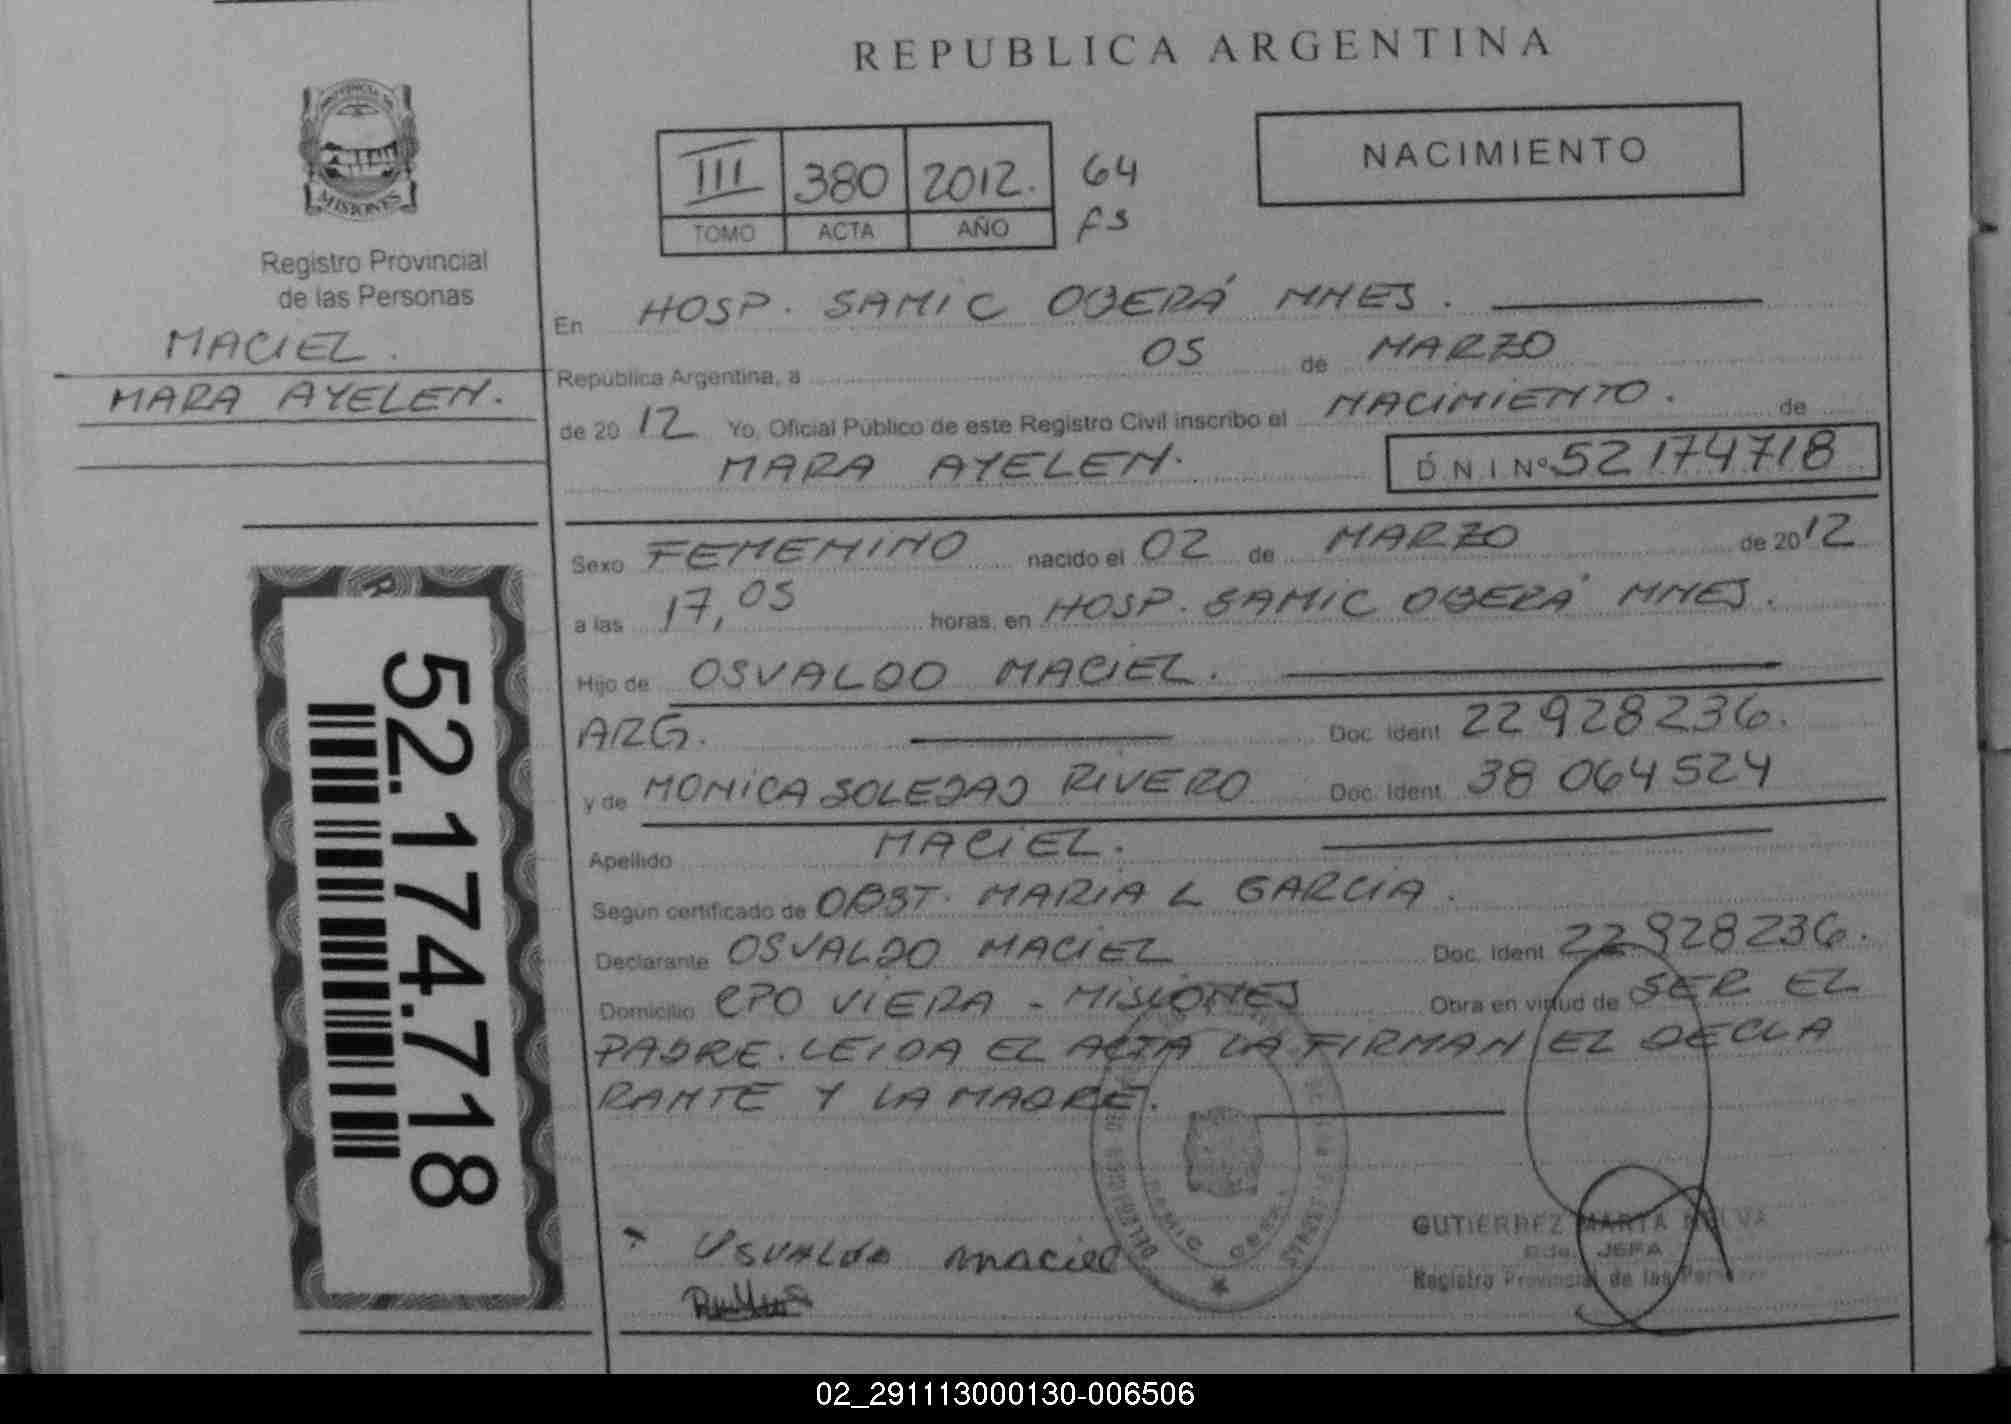 REPUBLICA ARGENTINA
PROVINCIA DE
MISIONES
Registro Provincial
de las Personas
MACIEL.
MARA AYELEN.
III 380 2012. 64
TOMO ACTA AÑO FS
NACIMIENTO
En HOSP. SAMIC OBERÁ MNES.
República Argentina, a 05 de MARZO
de 2012 Yo, Oficial Público de este Registro Civil inscribo el NACIMIENTO. de
MARA AYELEN. D.N.I. Nº 52174718
Sexo FEMENINO nacido el 02 de MARZO de 2012
a las 17,05 horas, en HOSP. SAMIC OBERÁ MNES.
Hijo de OSVALDO MACIEL.
ARG. Doc. Ident 22928236.
y de MONICA SOLEDAD RIVERO Doc. Ident 38 064524
Apellido MACIEL.
Según certificado de OBST. MARIA L GARCIA.
Declarante OSVALDO MACIEL Doc. Ident 22928236.
Domicilio CPO VIERA - MISIONES Obra en virtud de SER EL
PADRE. LEIDA EL ACTA LA FIRMAN EL DECLA
RANTE Y LA MADRE.
52.174.718
Osvaldo maciel
GUTIERREZ MARTA
JEFA
Registro Provincial de las
02_291113000130-006506